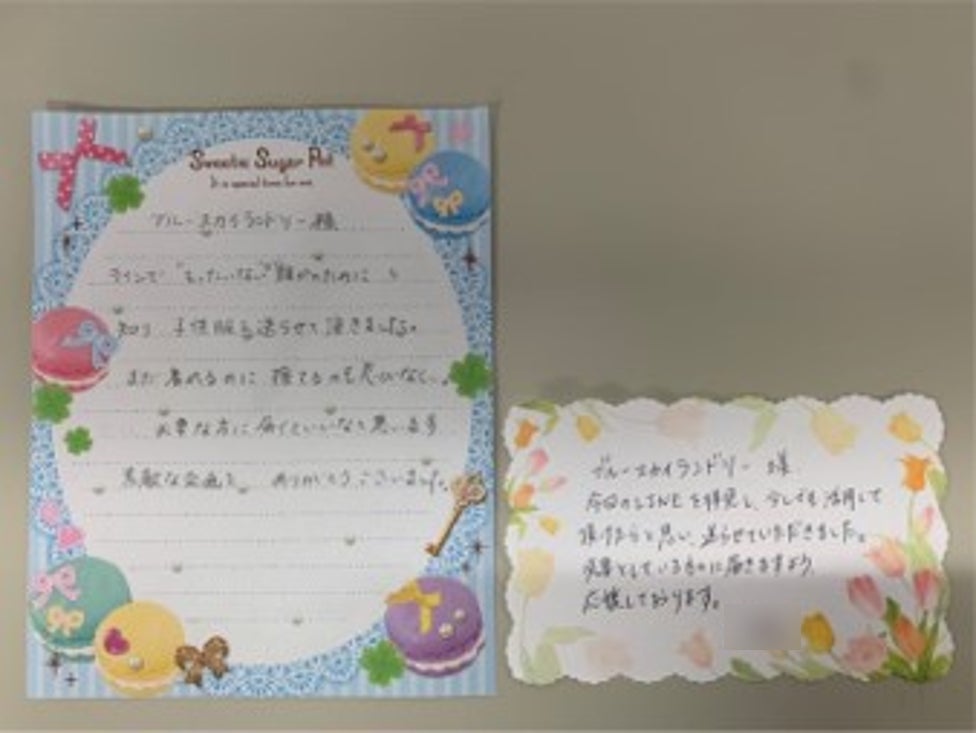 Sweetie Sugar Pot
It is special time for me.
ブルースカイランドリー様
ラインで "もったいない"を誰かのために を
知り 子供服を送らせて頂きました。
まだ着れるのに 捨てるのも
必要な方に届くといいなと思います
素敵な企画を ありがとうございました。
ブルースカイランドリー 様
今回のLINEを拝見し、少しでも活用して
頂けたらと思い、送らせていただきました。
必要としているものに届きますよう
応援しております。